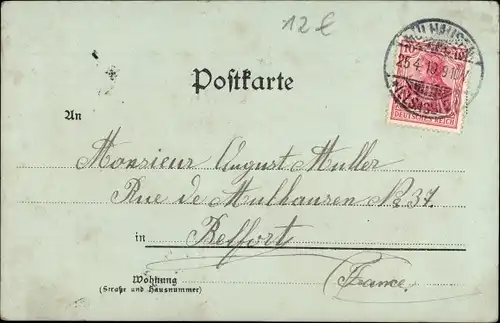 12 €
MÜLHAUSEN
10 10
25.4.10.
(ELSASS)
DEUTSCHES REICH
Postkarte
An
Monsieur August Muller
Rue de Mulhausen No 37.
in Belfort
Wohnung
(Straße und Hausnummer)
France.